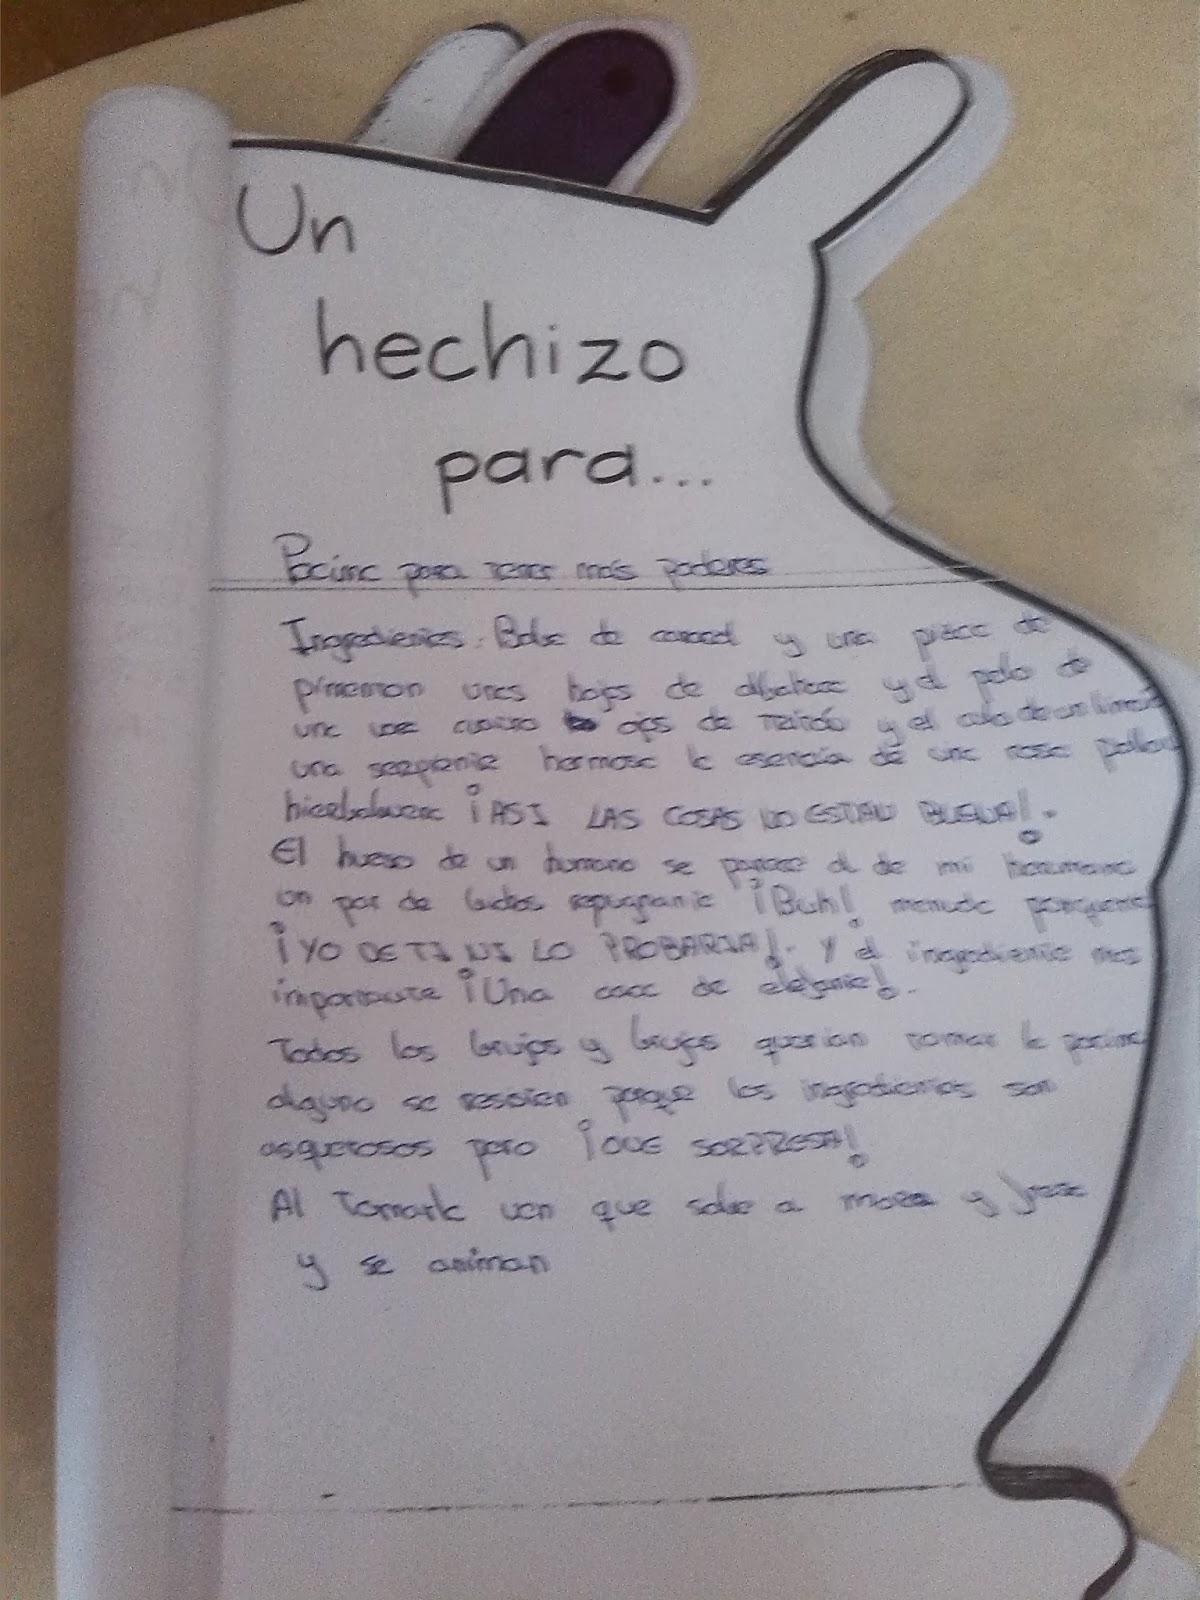 Un
hechizo
para...
Pocima para tener más poderes
Ingredientes. Baba de caracol y una pizca de
pimenton unas hojas de albahaca y el pelo de
una cuatro ojos de Tritón y el de un
una serpiente hermosa la esencia de una rosa
hierbabuena ¡ASI LAS COSAS NO ESTAN BUENA!.
El hueso de un humano se parece al de mi hermana
un par de repugnante ¡Buh! menuda porqueria
¡YO DE TI NI LO PROBARIA!. Y el ingrediente mas
importante ¡Una caca de elefante!.
Todos los brujos y brujas querian tomar la pocima
alguno se resisten porque los ingredientes son
asquerosos pero ¡QUE SORPRESA!
Al Tomarla ven que sabe a mora y fresa
y se animan